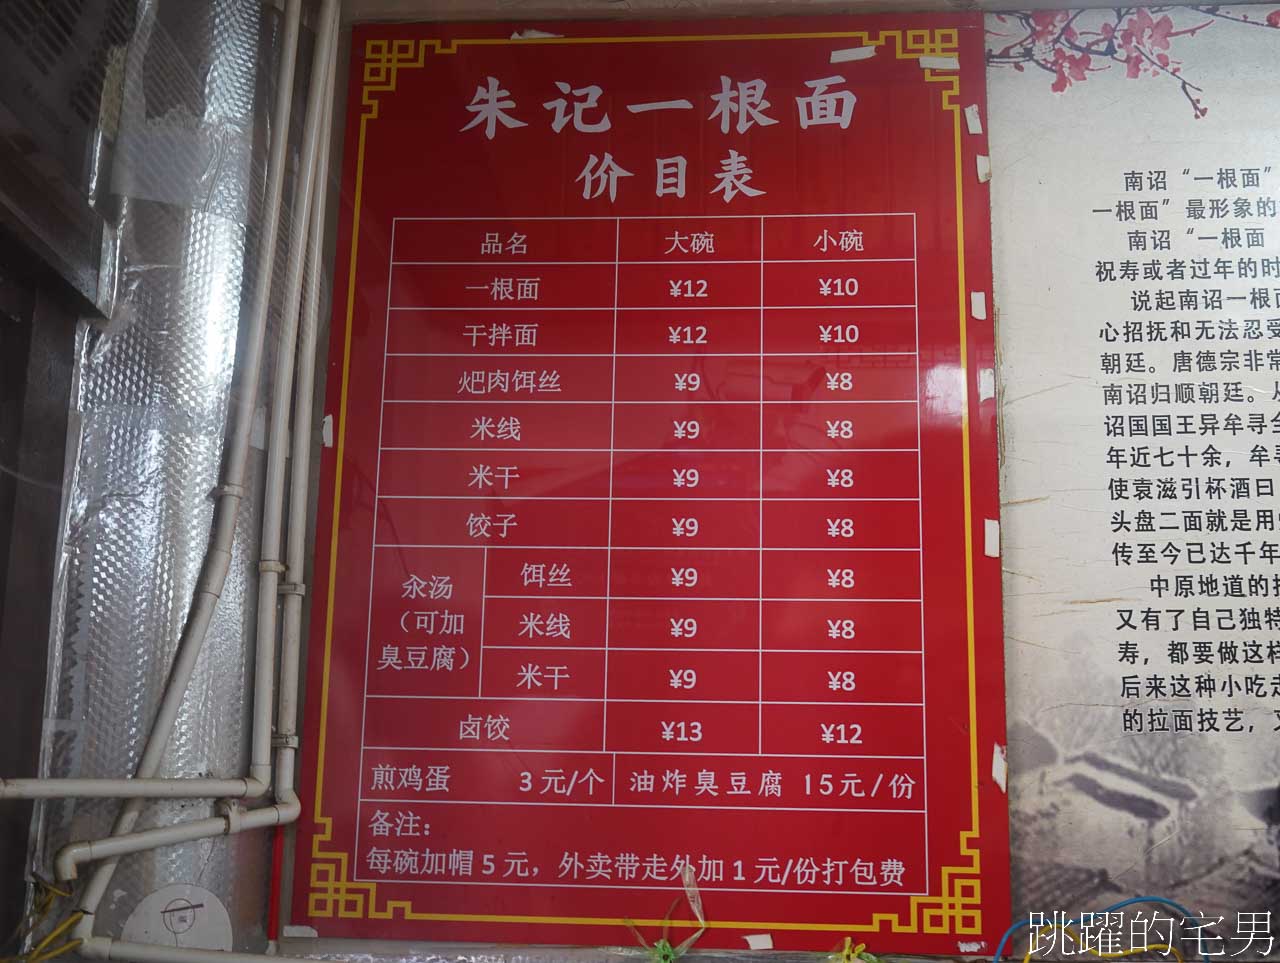 朱记一根面
价目表
品名 大碗 小碗
一根面 ¥12 ¥10
干拌面 ¥12 ¥10
𤆵肉饵丝 ¥9 ¥8
米线 ¥9 ¥8
米干 ¥9 ¥8
饺子 ¥9 ¥8
汆汤
（可加
臭豆腐）
饵丝 ¥9 ¥8
米线 ¥9 ¥8
米干 ¥9 ¥8
卤饺 ¥13 ¥12
煎鸡蛋 3元/个 油炸臭豆腐 15元/份
备注：
每碗加帽5元，外卖带走外加1元/份打包费
南诏“一根面”
一根面”最形象的
南诏“一根面
祝寿或者过年的时
说起南诏一根面
心招抚和无法忍受
朝廷。唐德宗非常
南诏归顺朝廷。从
诏国国王异牟寻全
年近七十余，牟寻
使袁滋引杯酒曰
头盘二面就是用
传至今已达千年
中原地道的
又有了自己独特
寿，都要做这样
后来这种小吃走
的拉面技艺，
跳躍的宅男